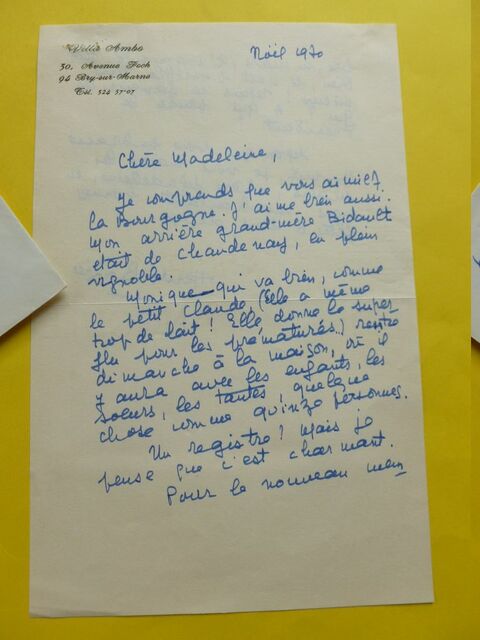 Villa Ambo
30, Avenue Foch
94 Bry-sur-Marne
Tél. 526 57-07
Noël 1970
Chère Madeleine,
Je comprends que vous aimiez
la Bourgogne. J'aime bien aussi.
Mon arrière grand-mère Bidault
était de Chaudenay, en plein
vignoble.
Monique qui va bien, comme
le petit Claude, (elle a même
trop de lait ! Elle donne le super-
flu pour les prématurés.) rentre
dimanche à la maison, où il
y aura avec les enfants, les
soeurs, les tantes, quelque
chose comme quinze personnes.
Un registre ? Mais je
pense que c'est charmant.
Pour le nouveau mén